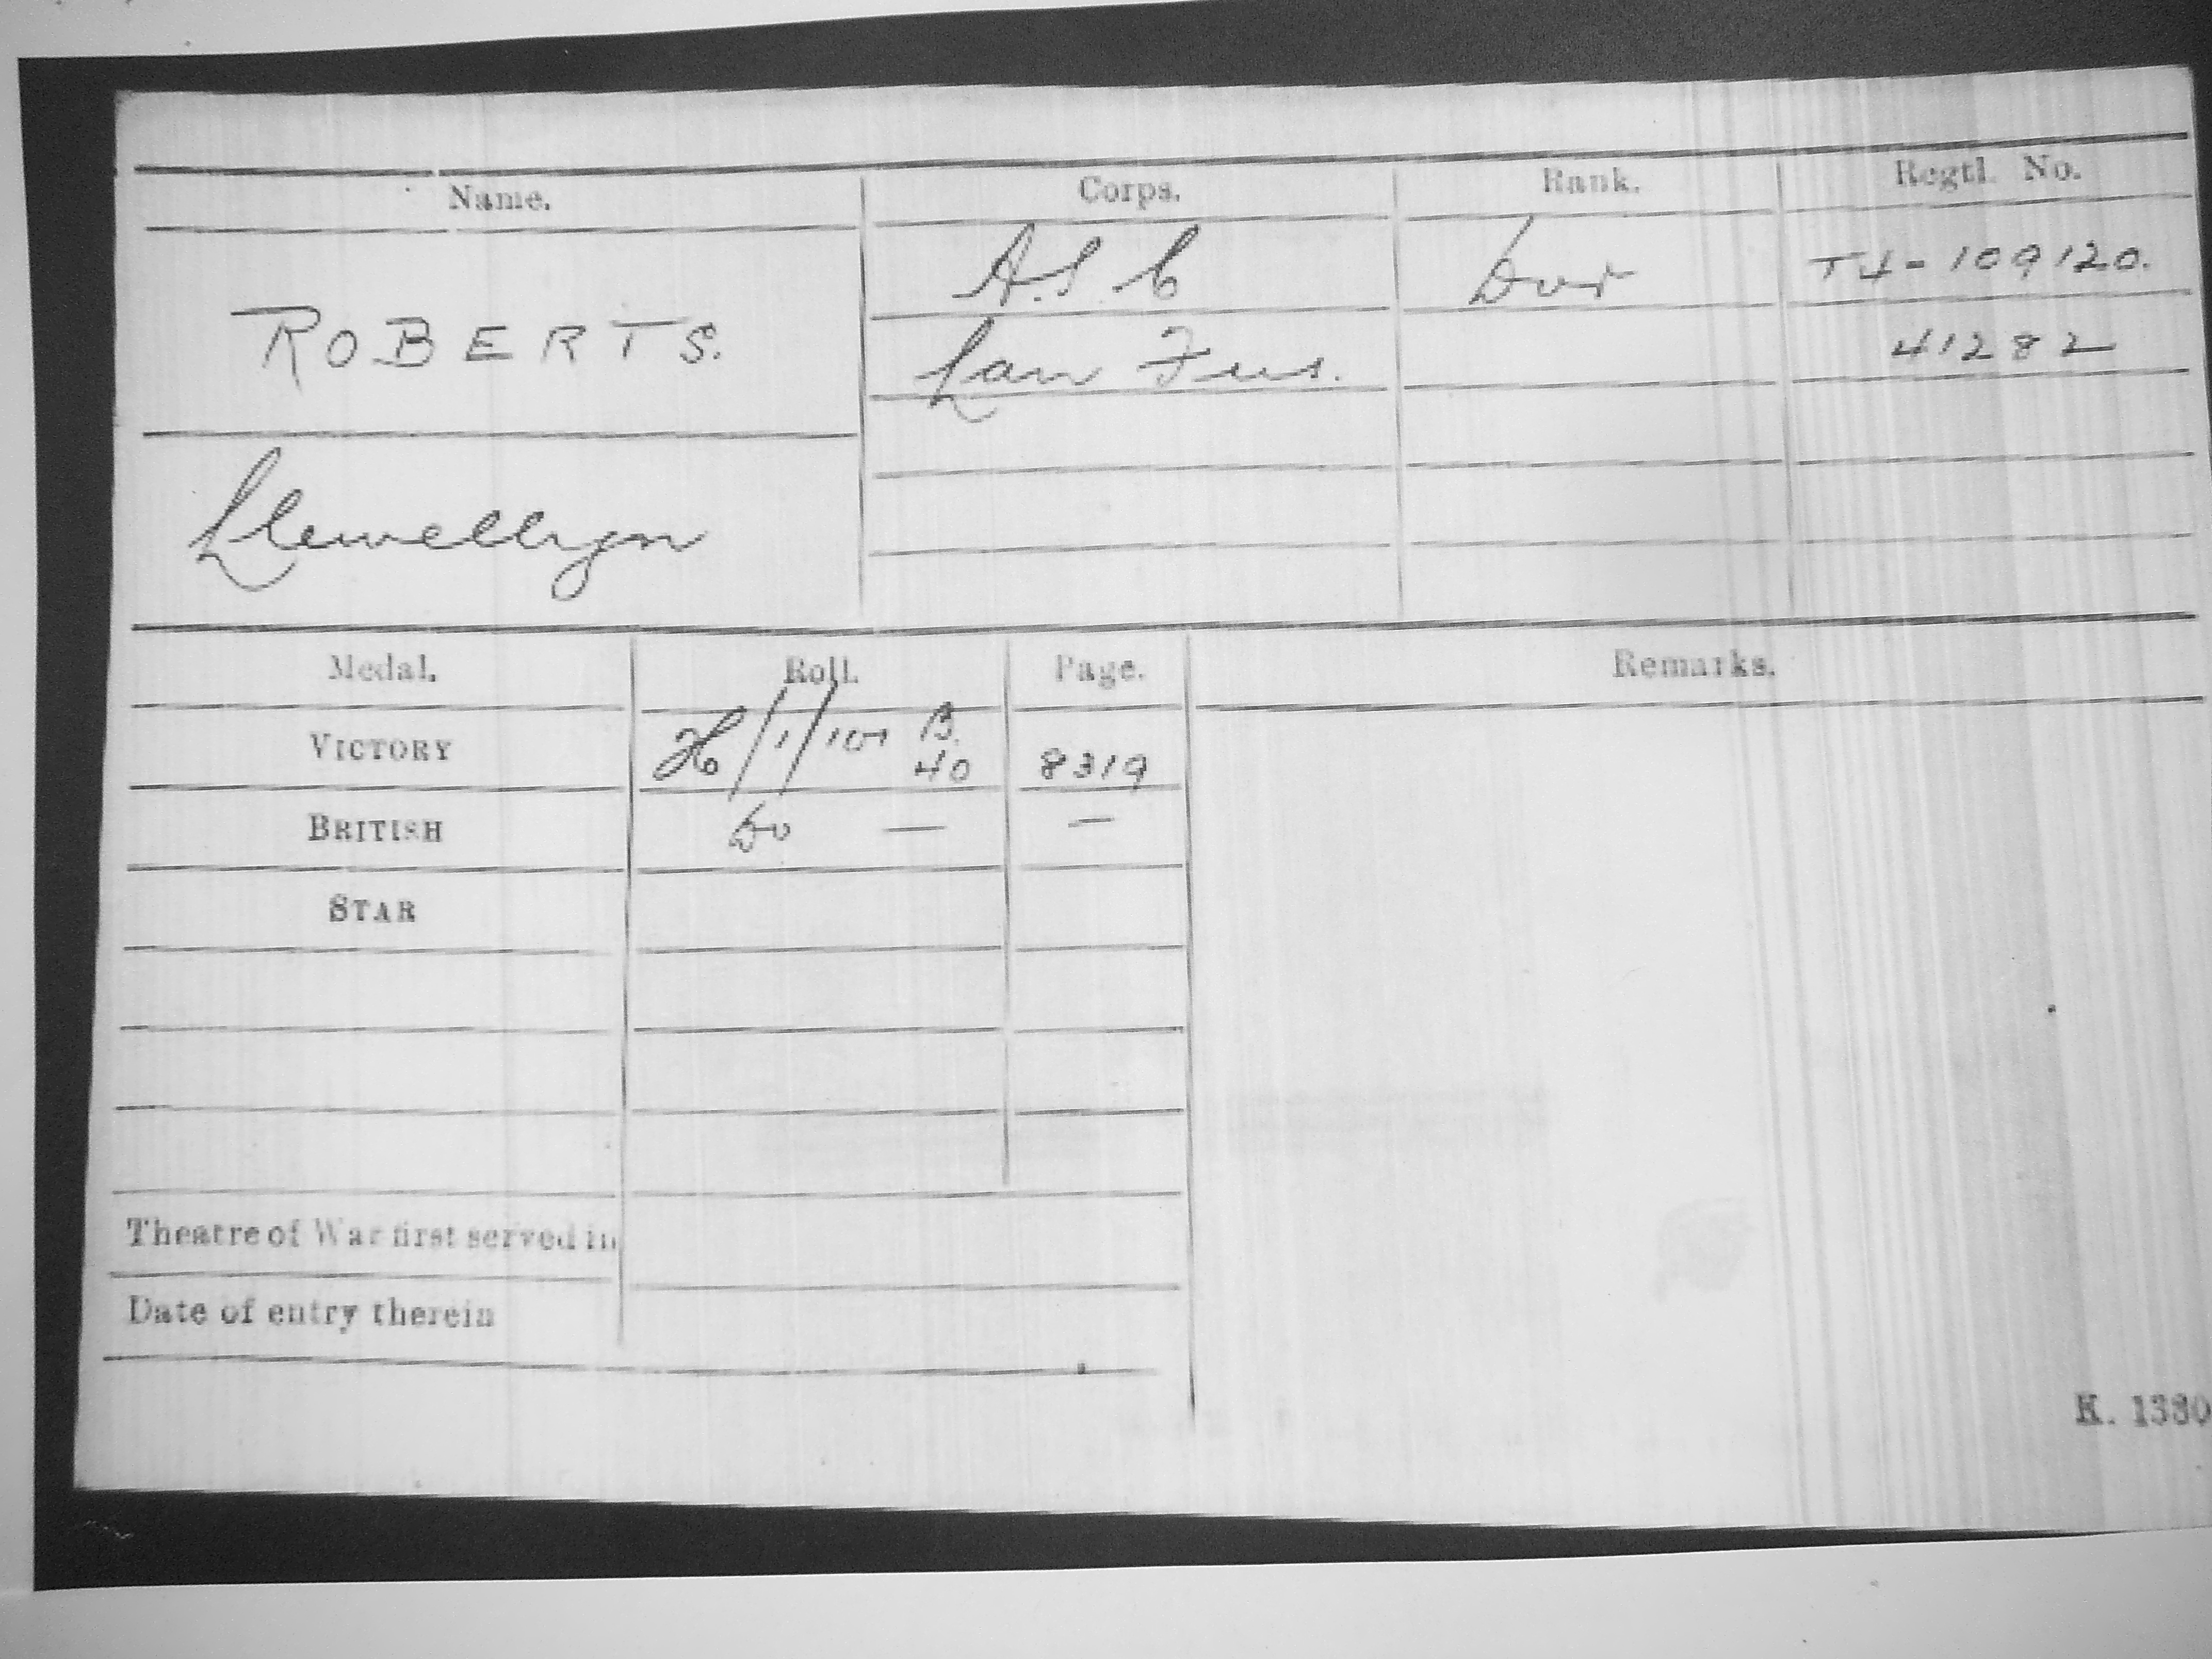 Name. Corps. Rank. Regtl. No.
ROBERTS. A.S.C Dvr T4-109120.
Lan Fus. 41282
Llewellyn
Medal. Roll. Page. Remarks.
VICTORY H/1/101 B. 40 8319
BRITISH Do — —
STAR
Theatre of War first served in
Date of entry therein
K. 1380